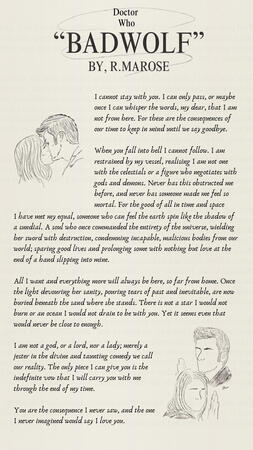 Doctor
Who
“BADWOLF”
BY, R.MAROSE
I cannot stay with you. I can only pass, or maybe
once I can whisper the words, my dear, that I am
not from here. For these are the consequences of
our time to keep in mind until we say goodbye.
When you fall into hell I cannot follow. I am
restrained by my vessel, realising I am not one
with the celestials or a figure who negotiates with
gods and demons. Never has this obstructed me
before, and never has someone made me feel so
mortal. For the good of all in time and space
I have met my equal, someone who can feel the earth spin like the shadow of
a sundial. A soul who once commanded the entirety of the universe, wielding
her sword with destruction, condemning incapable, malicious bodies from our
world; sparing good lives and prolonging some with nothing but love at the
end of a hand slipping into mine.
All I want and everything more will always be here, so far from home. Once
the light devouring her sanity, pouring tears of past and inevitable, are now
buried beneath the sand where she stands. There is not a star I would not
burn or an ocean I would not drain to be with you. Yet it seems even that
would never be close to enough.
I am not a god, or a lord, nor a lady; merely a
jester in the divine and taunting comedy we call
our reality. The only piece I can give you is the
indefinite vow that I will carry you with me
through the end of my time.
You are the consequence I never saw, and the one
I never imagined would say I love you.